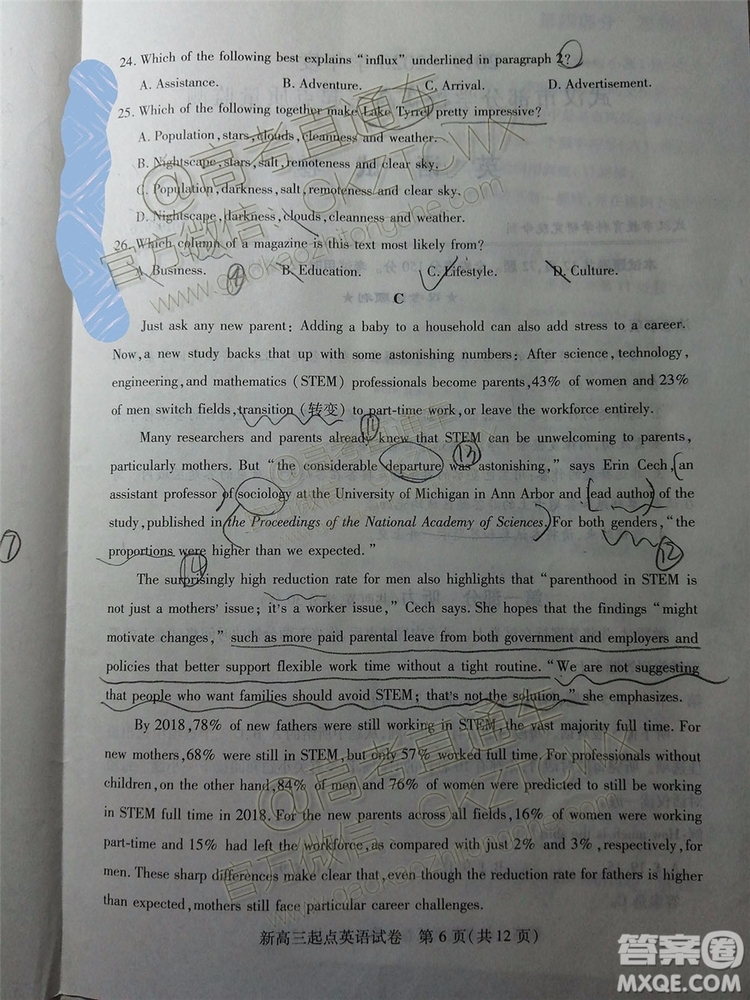 24. Which of the following best explains “influx” underlined in paragraph 2?
A. Assistance. B. Adventure. C. Arrival. D. Advertisement.
25. Which of the following together make Lake Tyrrel pretty impressive?
A. Population, stars, clouds, cleanness and weather.
B. Nightscape, stars, salt, remoteness and clear sky.
C. Population, darkness, salt, remoteness and clear sky.
D. Nightscape, darkness, clouds, cleanness and weather.
26. Which column of a magazine is this text most likely from?
A. Business. B. Education. C. Lifestyle. D. Culture.
C
Just ask any new parent: Adding a baby to a household can also add stress to a career.
Now, a new study backs that up with some astonishing numbers: After science, technology,
engineering, and mathematics (STEM) professionals become parents, 43% of women and 23%
of men switch fields, transition (转变) to part-time work, or leave the workforce entirely.
⑪
Many researchers and parents already knew that STEM can be unwelcoming to parents,
⑬
particularly mothers. But “the considerable departure was astonishing,” says Erin Cech, an
assistant professor of sociology at the University of Michigan in Ann Arbor and lead author of the
study, published in the Proceedings of the National Academy of Sciences. For both genders, “the
⑦
proportions were higher than we expected.”
⑫
⑭
The surprisingly high reduction rate for men also highlights that “parenthood in STEM is
not just a mothers' issue; it's a worker issue,” Cech says. She hopes that the findings “might
motivate changes,” such as more paid parental leave from both government and employers and
policies that better support flexible work time without a tight routine. “We are not suggesting
that people who want families should avoid STEM; that's not the solution,” she emphasizes.
By 2018, 78% of new fathers were still working in STEM, the vast majority full time. For
new mothers, 68% were still in STEM, but only 57% worked full time. For professionals without
children, on the other hand, 84% of men and 76% of women were predicted to still be working
in STEM full time in 2018. For the new parents across all fields, 16% of women were working
part-time and 15% had left the workforce, as compared with just 2% and 3%, respectively, for
men. These sharp differences make clear that, even though the reduction rate for fathers is higher
than expected, mothers still face particular career challenges.
新高三起点英语试卷 第 6 页(共 12 页)
@高考直通车
官方微信: GKZTCWX
www.gaokaozhitongche.com
@高考直通车
官方微信: GKZTCWX
www.gaokaozhitongche.com
答案圈
MXQE.COM